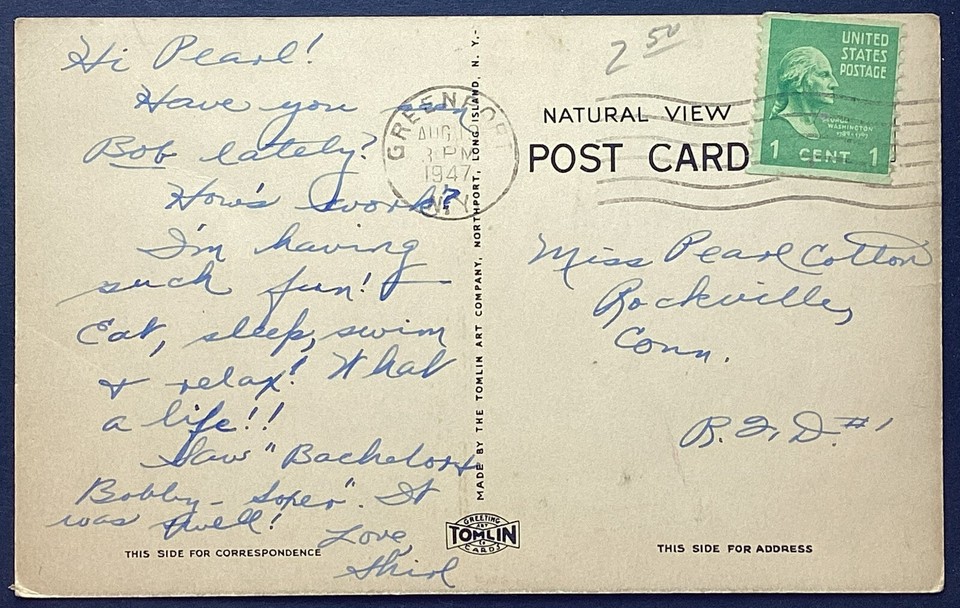 Hi Pearl!
Have you seen
Bob lately?
How's work?
I'm having
such fun! I
Eat, sleep, swim
& relax! What
a life!!
Saw "Bachelor &
Bobby-Soxer". It
was swell!
Love,
Shirl
THIS SIDE FOR CORRESPONDENCE
MADE BY THE TOMLIN ART COMPANY, NORTHPORT, LONG ISLAND, N. Y.-
GREETING
ART
TOMLIN
CARDS
GREENPORT
AUG
3 PM
1947
N.Y.
2 50
NATURAL VIEW
POST CARD
UNITED
STATES
POSTAGE
GEORGE
WASHINGTON
1789-1797
1 CENT 1
Miss Pearl Cotton
Rockville,
Conn.
R.F.D. #1
THIS SIDE FOR ADDRESS